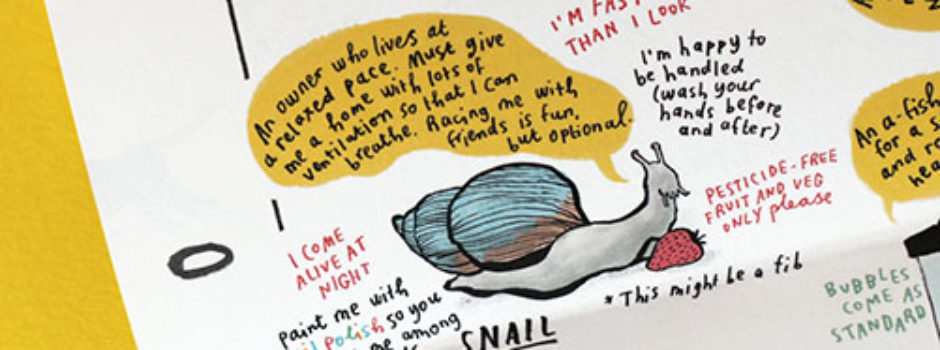 An owner who lives at
a relaxed pace. Must give
me a home with lots of
ventilation so that I can
breathe. Racing me with
friends is fun,
but optional.
I'M FAST
THAN I LOOK
I'm happy to
be handled
(wash your
hands before
and after)
PESTICIDE-FREE
FRUIT AND VEG
ONLY please
I COME
ALIVE AT
NIGHT
paint me with
polish so you
me among
SNAIL
* This might be a fib
An a-fish
for a s
and ro
hea
BUBBLES
COME AS
STANDARD